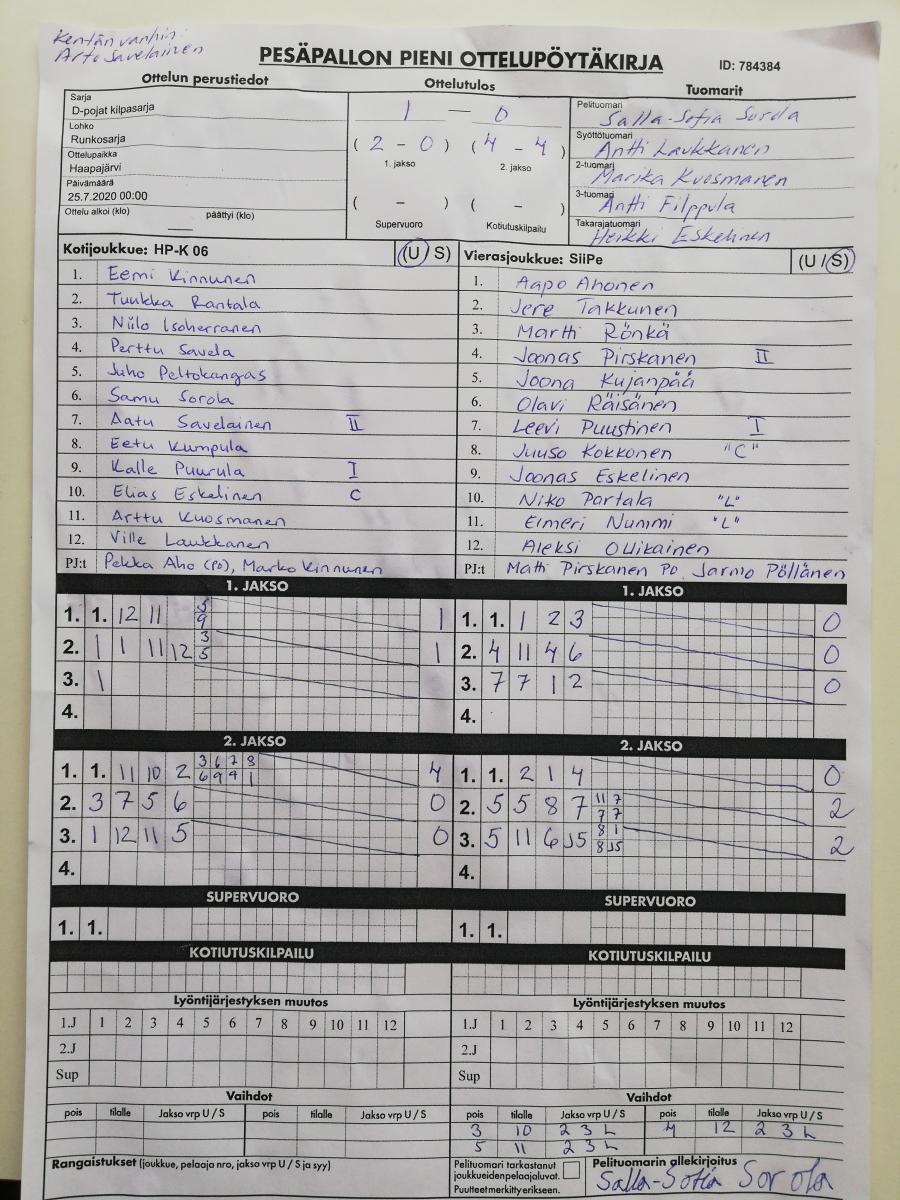 Kentän vanhin:
Arto Savelainen
PESÄPALLON PIENI OTTELUPÖYTÄKIRJA
ID: 784384
Ottelun perustiedot
Ottelutulos
Tuomarit
Sarja
D-pojat kilpasarja
Lohko
Runkosarja
Ottelupaikka
Haapajärvi
Päivämäärä
25.7.2020 00:00
Ottelu alkoi (klo) päättyi (klo)
1 — 0
( 2 - 0 ) ( 4 - 4 )
1. jakso 2. jakso
( – ) ( – )
Supervuoro Kotiutuskilpailu
Pelituomari
Salla-Sofia Sorola
Syöttötuomari
Antti Laukkanen
2-tuomari
Marika Kuosmanen
3-tuomari
Antti Filppula
Takarajatuomari
Heikki Eskelinen
Kotijoukkue: HP-K 06 (U / S)
1. Eemi Kinnunen
2. Tuukka Rantala
3. Niilo Isoherranen
4. Perttu Savela
5. Juho Peltokangas
6. Samu Sorola
7. Aatu Savelainen II
8. Eetu Kumpula
9. Kalle Puurula I
10. Elias Eskelinen C
11. Arttu Kuosmanen
12. Ville Laukkanen
PJ:t Pekka Aho (PO), Marko Kinnunen
Vierasjoukkue: SiiPe (U / S)
1. Aapo Ahonen
2. Jere Takkunen
3. Martti Rönkä
4. Joonas Pirskanen II
5. Joona Kujanpää
6. Olavi Räisänen
7. Leevi Puustinen I
8. Juuso Kokkonen "C"
9. Joonas Eskelinen
10. Niko Partala "L"
11. Eimeri Nummi "L"
12. Aleksi Ollikainen
PJ:t Matti Pirskanen PO, Jarmo Pöllänen
1. JAKSO
1. 1. 12 11 5 9 1
2. 1 1 11 12 3 5 1
3. 1
4.
1. JAKSO
1. 1. 1 2 3 0
2. 4 11 4 6 0
3. 7 7 1 2 0
4.
2. JAKSO
1. 1. 11 10 2 3 6 7 8 4
6 9 9 1
2. 3 7 5 6 0
3. 1 12 11 5 0
4.
2. JAKSO
1. 1. 2 1 4 0
2. 5 5 8 7 11 7 2
7 7
3. 5 11 6 J5 8 1 2
8 J5
4.
SUPERVUORO
1. 1.
SUPERVUORO
1. 1.
KOTIUTUSKILPAILU
KOTIUTUSKILPAILU
Lyöntijärjestyksen muutos
1.J 1 2 3 4 5 6 7 8 9 10 11 12
2.J
Sup
Lyöntijärjestyksen muutos
1.J 1 2 3 4 5 6 7 8 9 10 11 12
2.J
Sup
Vaihdot
pois tilalle Jakso vrp U / S pois tilalle Jakso vrp U / S
Vaihdot
pois tilalle Jakso vrp U / S pois tilalle Jakso vrp U / S
3 10 2 3 L 4 12 2 3 L
5 11 2 3 L
Rangaistukset (joukkue, pelaaja nro, jakso vrp U / S ja syy)
Pelituomari tarkastanut
joukkueidenpelaajaluvat.
Puutteet merkitty erikseen.
Pelituomarin allekirjoitus
Salla-Sofia Sorola